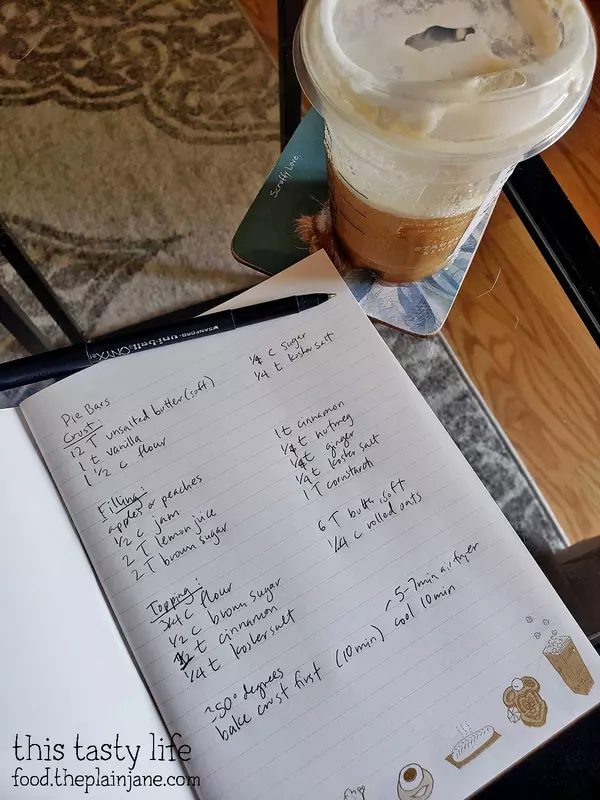 Scruffy Love.
SANFORD uni-ball ONYX
Pie Bars
Crust:
12 T unsalted butter (soft)
1 t vanilla
1 1/2 c flour
1/4 c sugar
1/4 t kosher salt
Filling:
apples or peaches
1/2 c jam
2 T lemon juice
2 T brown sugar
1 t cinnamon
1/4 t nutmeg
1/4 t ginger
1/4 t kosher salt
1 T cornstarch
Topping:
3/4 c flour
1/2 c brown sugar
1/2 t cinnamon
1/4 t kosher salt
6 T butter soft
1/4 c rolled oats
350° degrees
bake crust first (10 min) ~5-7 min air fryer
cool 10 min
this tasty life
food.theplainjane.com